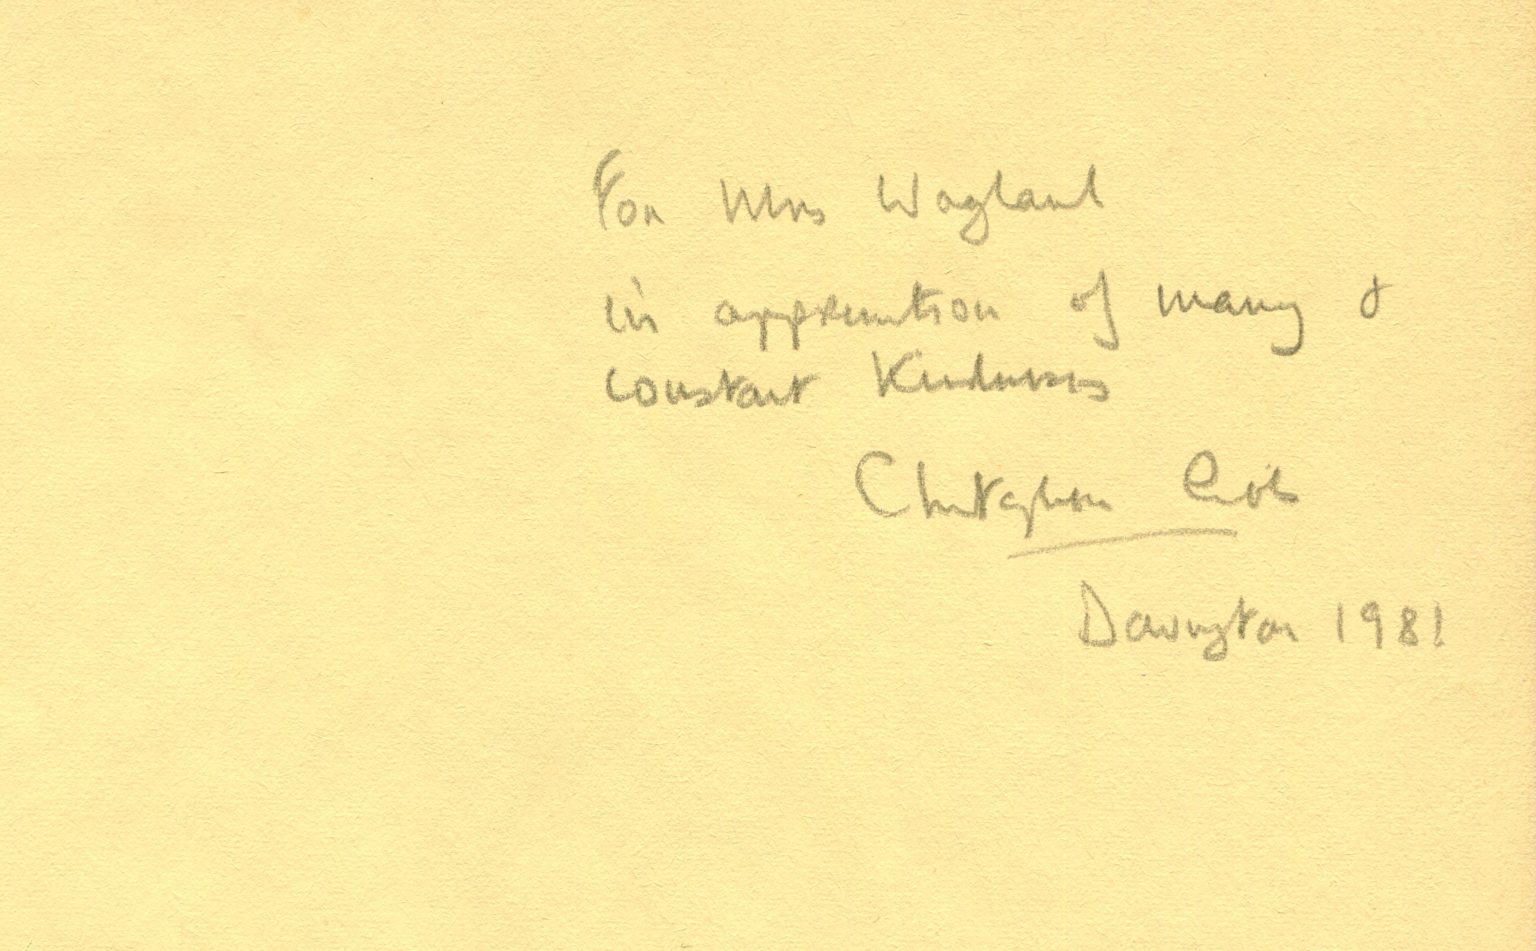 For Mrs Wagland
in appreciation of many &
constant kindnesses
Christopher Gibbs
Davington 1981